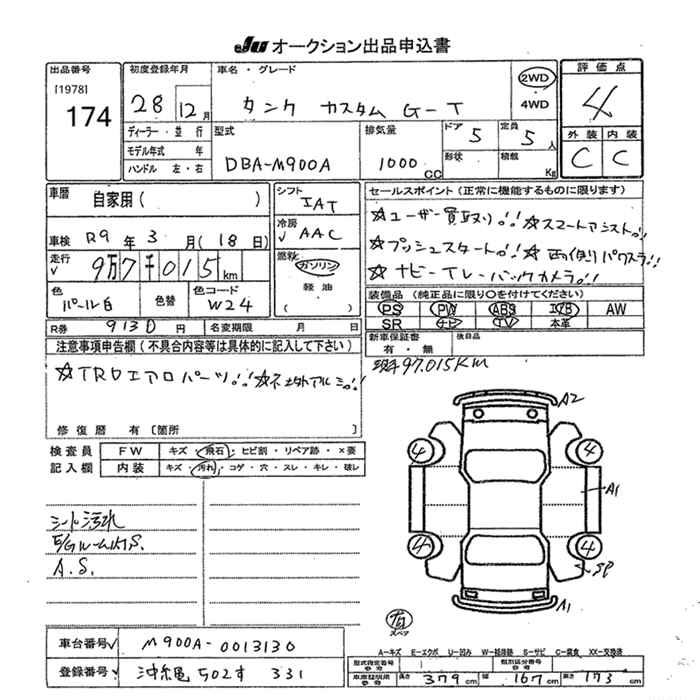 JU オークション出品申込書
出品番号 [1978] 174
初度登録年月 28 12月
車名・グレード タンク カスタム G-T
2WD
4WD
評価点 4
外装 内装
C C
ディーラー・並行
モデル年式 年
ハンドル 左・右
型式 DBA-M900A
排気量 1000 CC
ドア 5
定員 5人
形状
積載 Kg
車歴 自家用( )
車検 R9年 3月(18日)
走行 9万7千015km
色 パール白
色替
色コード W24
シフト IAT
冷房 AAC
燃料 ガソリン
軽油
( )
セールスポイント(正常に機能するものに限ります)
☆ユーザー買取り!! ☆スマートアシスト!!
☆プッシュスタート!! ☆両側パワスラ!!
☆ナビーTV-バックカメラ!!
装備品(純正品に限り○を付けてください)
PS PW ABS エアB AW
SR ナビ TV 本革
R券 9130円
名変期限 月 日
新車保証書 有・無
後日品
注意事項申告欄(不具合内容等は具体的に記入して下さい)
☆TRDエアロパーツ!! ☆社外アルミ!!
現 97,015Km
修復歴 有 [箇所
検査員 FW キズ・飛石・ヒビ割・リペア跡・×要
記入欄 内装 キズ・汚れ・コゲ・穴・スレ・キレ・破レ
シート汚れ
E/GルームサS.
A.S.
A2
4 4
A1
4 4
SP
A1
有
スペア
車台番号 M900A-0013130
登録番号 沖縄 502す 331
A-キズ E-エクボ U-凹み W-軽修跡 S-サビ C-腐食 XX-交換済
型式指定番号 参考
類別区分番号 参考
車庫証明用 参考 長さ 379cm 幅 167cm 高さ 173cm